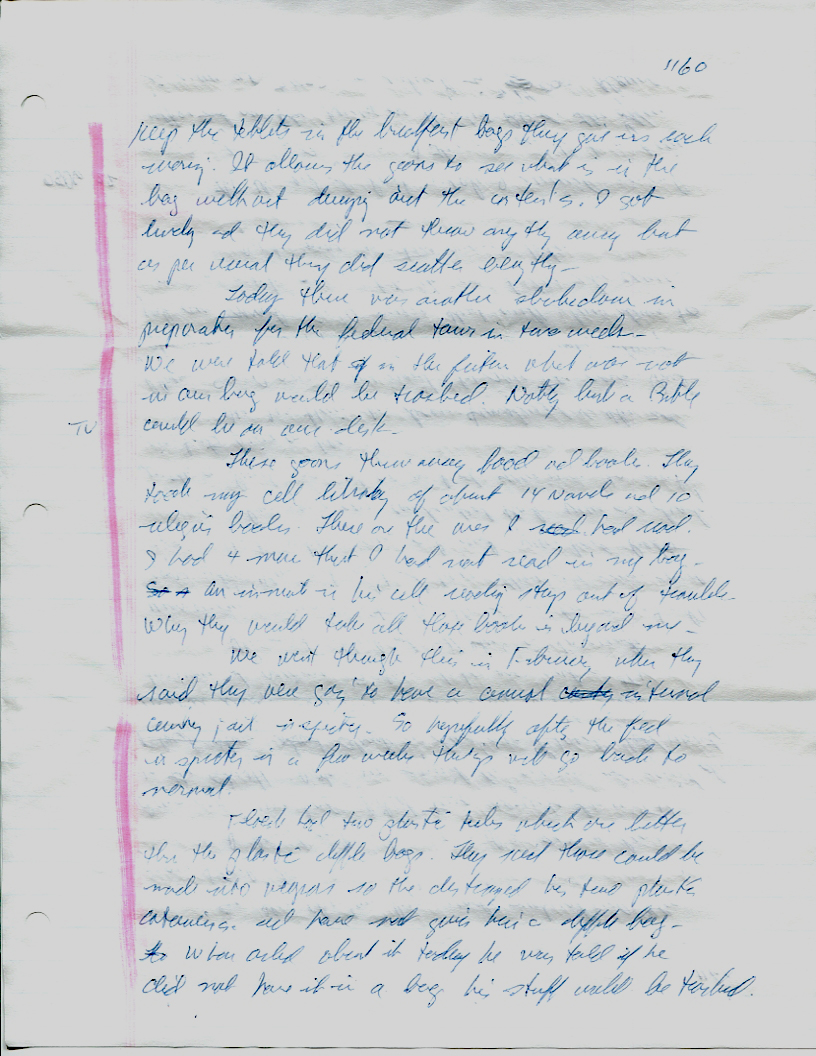 1160
keep the tablets in the breakfast bags they give us each
morning. It allows the goons to see what is in the
bag without dumping out the contents. I got
lucky and they did not throw anything away but
as per usual they did scatter everything -
Today there was another shakedown in
preparation for the federal tour in two weeks -
We were told that in the future what was not
in our bag would be trashed. Nothing but a Bible
could be on our desk -
TV
These goons threw away food and books. They
took my cell library of about 14 novels and 10
religious books. These are the ones I had read.
I had 4 more that I had not read in my bag -
an inmate in his cell reading stays out of trouble -
Why they would take all those books is beyond me -
We went through this in February when they
said they were going to have a annual internal
county jail inspection. So hopefully after the fed
inspection in a few weeks things will go back to
normal.
had two plastic tubs which are better
than the plastic duffle bags. They said those could be
made into weapons so the destroyed his two plastic
containers and have not given him a duffle bag -
When asked about it today he was told if he
did not have it in a bag his stuff would be trashed.